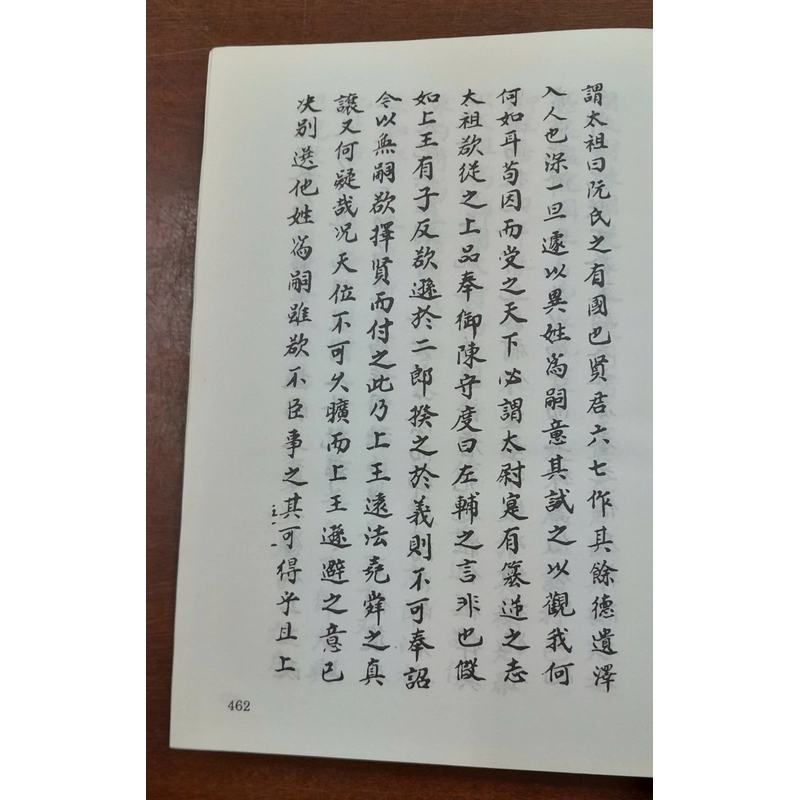 謂太祖曰阮氏之有國也賢君六七作其餘德遺澤
入人也深一旦遽以異姓為嗣意其試之以觀我何
何如耳苟因而受之天下必謂太尉寔有簒逆之志
太祖欲從之上品奉御陳守度曰左輔之言非也假
如上王有子反欲遜於二郎揆之於義則不可奉詔
令以無嗣欲擇賢而付之此乃上王遠法堯舜之真
讓又何疑哉况天位不可久曠而上王遜避之意已
决别選他姓為嗣雖欲不臣事之其可得乎且上
462